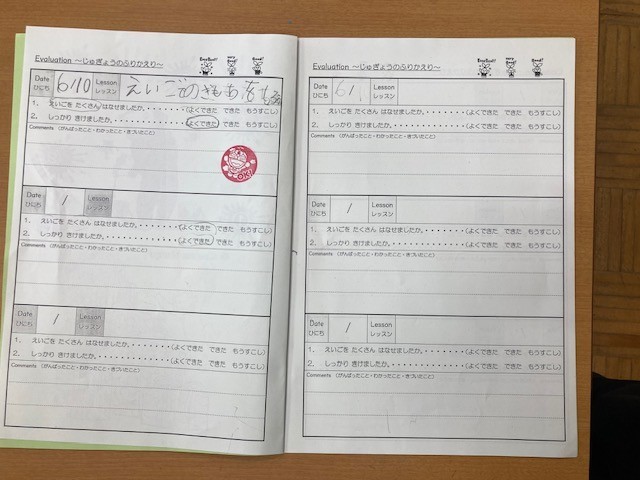 Evaluation ～じゅぎょうのふりかえり～
Date ひにち 6/10 Lesson レッスン えいごでのきもち
1. えいごを たくさん はなせましたか。・・・・・・・(よくできた できた もうすこし)
2. しっかり きけましたか。・・・・・・・・・・(よくできた できた もうすこし)
Comments （がんばったこと・わかったこと・きづいたこと）
Date ひにち / Lesson レッスン
1. えいごを たくさん はなせましたか。・・・・・・・(よくできた できた もうすこし)
2. しっかり きけましたか。・・・・・・・・・・(よくできた できた もうすこし)
Comments （がんばったこと・わかったこと・きづいたこと）
Date ひにち / Lesson レッスン
1. えいごを たくさん はなせましたか。・・・・・・・(よくできた できた もうすこし)
2. しっかり きけましたか。・・・・・・・・・・(よくできた できた もうすこし)
Comments （がんばったこと・わかったこと・きづいたこと）
Evaluation ～じゅぎょうのふりかえり～
Date ひにち 6/ Lesson レッスン
1. えいごを たくさん はなせましたか。・・・・・・・(よくできた できた もうすこし)
2. しっかり きけましたか。・・・・・・・・・・(よくできた できた もうすこし)
Comments （がんばったこと・わかったこと・きづいたこと）
Date ひにち / Lesson レッスン
1. えいごを たくさん はなせましたか。・・・・・・・(よくできた できた もうすこし)
2. しっかり きけましたか。・・・・・・・・・・(よくできた できた もうすこし)
Comments （がんばったこと・わかったこと・きづいたこと）
Date ひにち / Lesson レッスン
1. えいごを たくさん はなせましたか。・・・・・・・(よくできた できた もうすこし)
2. しっかり きけましたか。・・・・・・・・・・(よくできた できた もうすこし)
Comments （がんばったこと・わかったこと・きづいたこと）